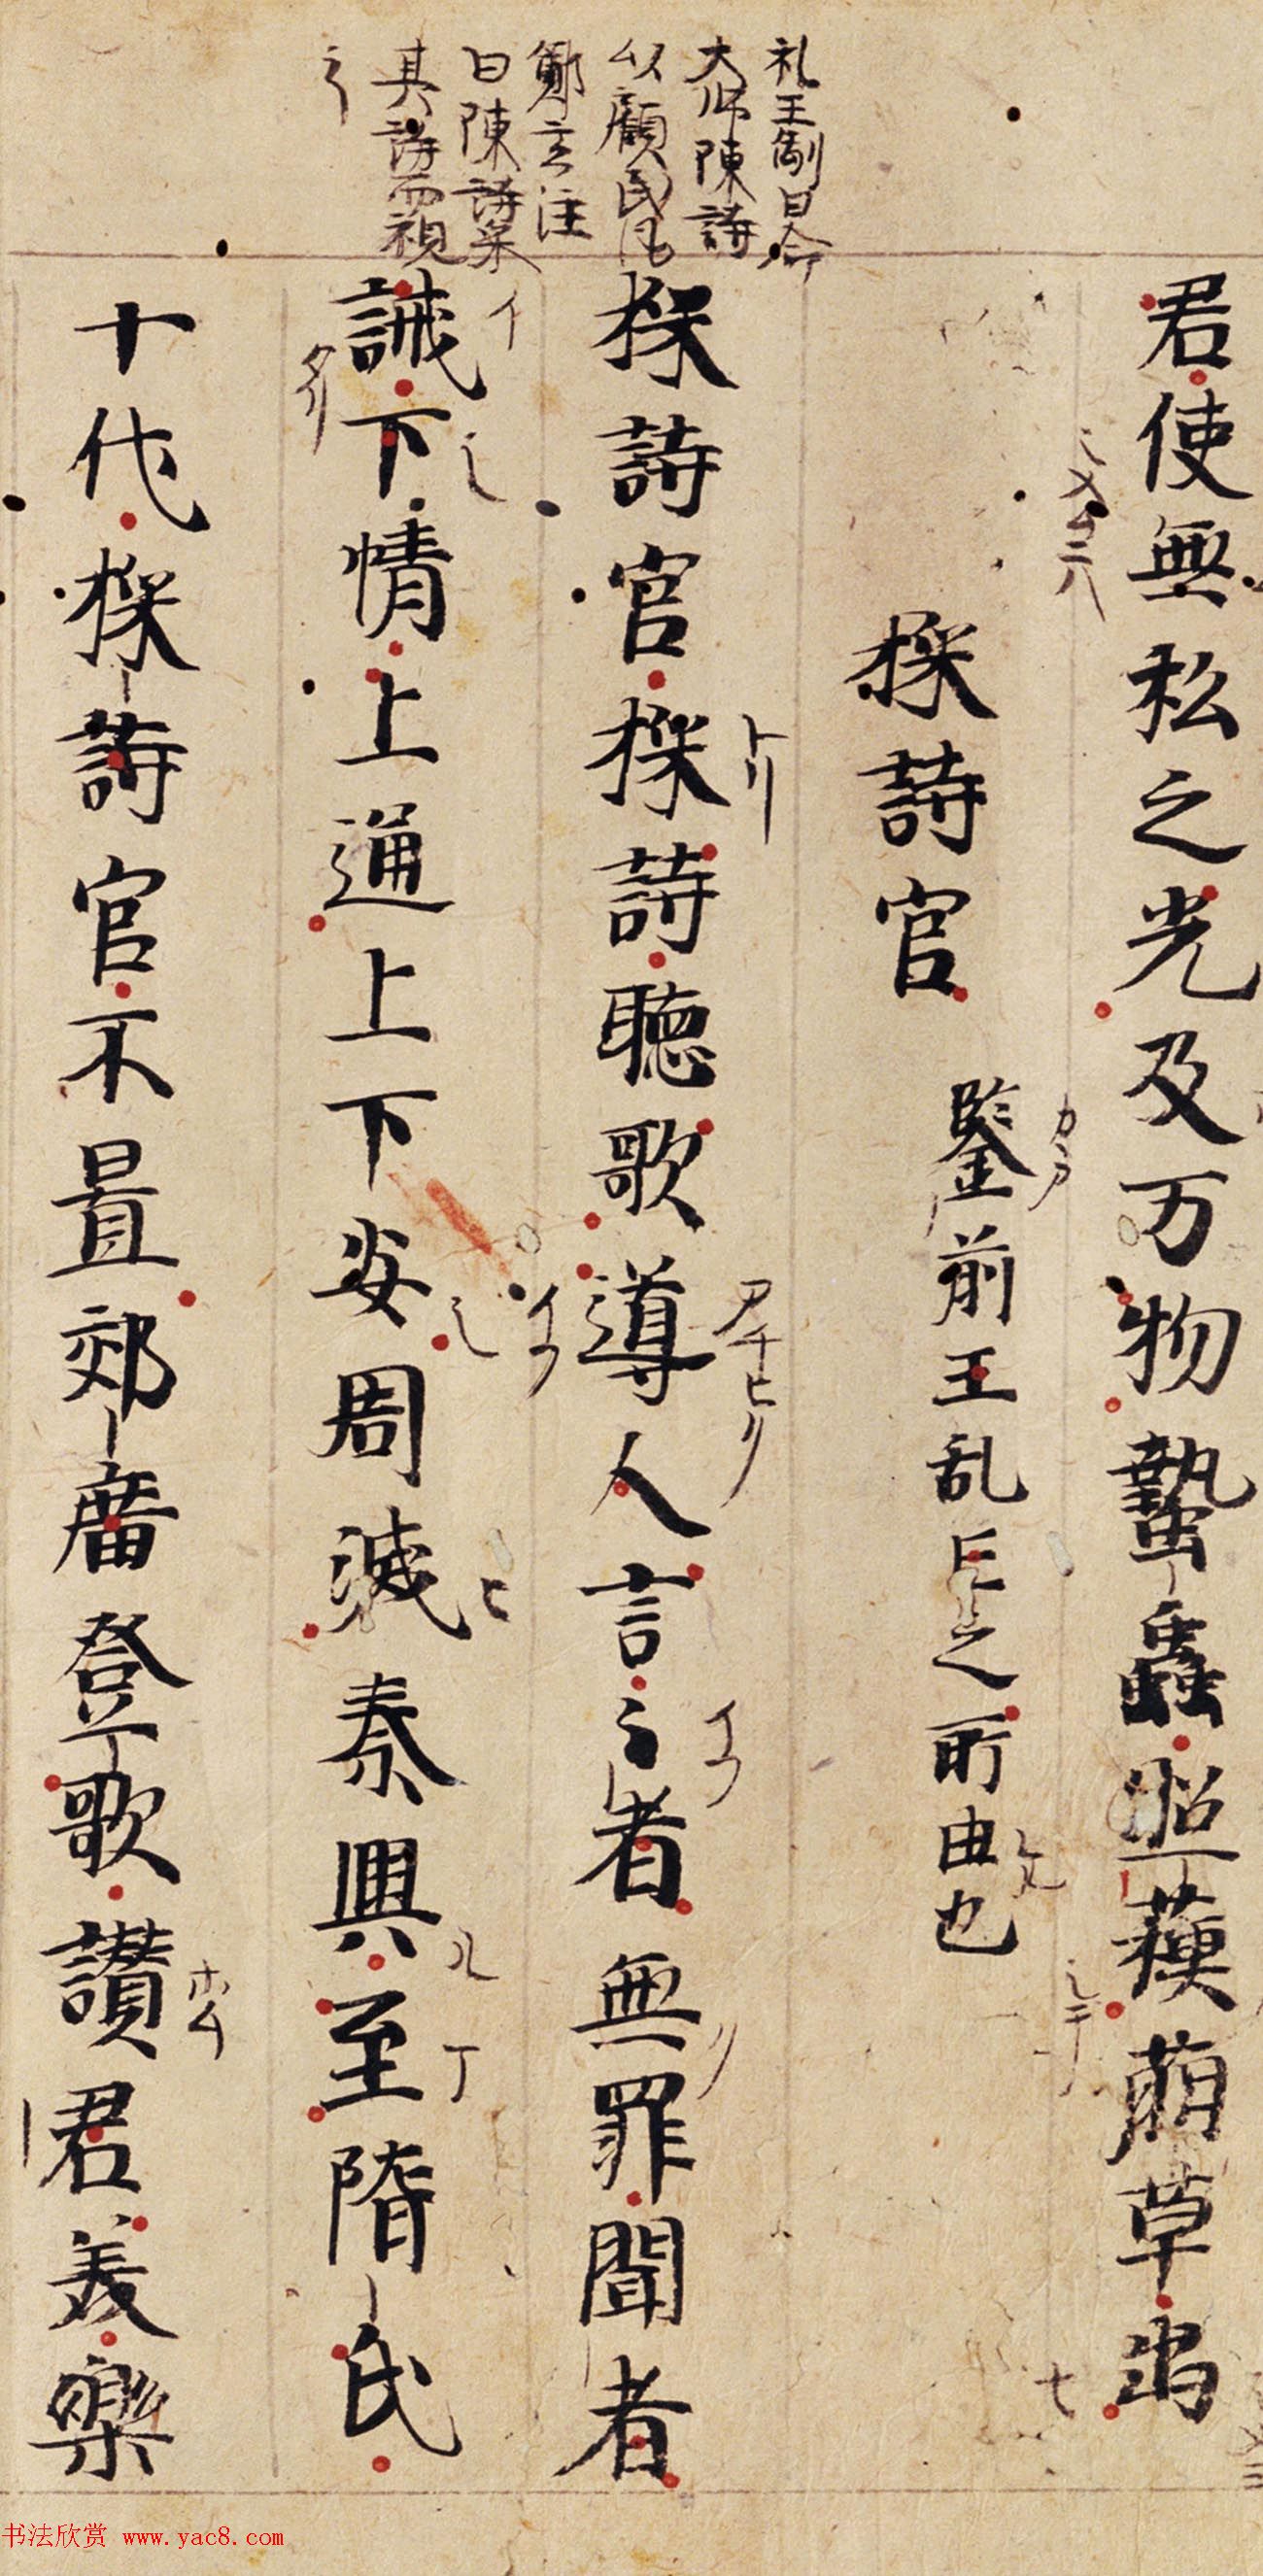 礼王制曰命
大師陳詩
以顧民風
鄭玄注
曰陳詩采
其詩而視
之
君使無私之光及万物蟄蟲照蘓萠草出
採詩官 鑒前王乱亡之所由也
採詩官採詩聴歌導人言〻者無罪聞者
誡下情上通上下安周滅秦興至隋氏
十代採詩官不置郊廣登歌讃君美樂
书法欣赏 www.yac8.com